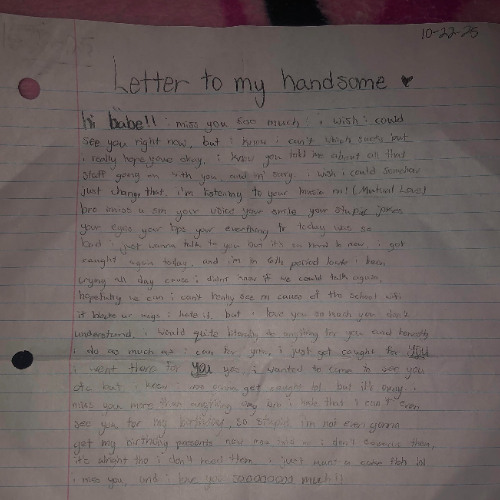 10-22-25
Letter to my handsome ♥
hi babe!! i miss you soo much i wish i could
see you right now, but i know i can't which sucks but
i really hope youre okay, i know you told me about all that
stuff going on with you and im sorry i wish i could somehow
just change that, i'm listening to your music rn! (Mutual Love)
bro i miss u sm your voice your smile your stupid jokes
your eyes your lips your everything to today was so
bad i just wanna talk to you but it's so hard to now, i got
caught again today, and i'm in 6th period i been
crying all day cause i didnt know if we could talk again,
hopefully we can i can't really see on cause of the school wifi
it blocks ur msgs i hate it, but i love you so much you don't
understand, i would quite literally do anything for you and honestly
i do as much as i can for you, i just got caught for
i went there for you yes, i wanted to come to see you
but i know i was gonna get caught lol but it's okay
miss you more than anything i hate that i can't even
see you for my birthday, so stupid i'm not even gonna
get my birthday presents now i don't deserve them,
it's alright tho i don't need them i just
i miss you, and i love you sooooooooo much!!